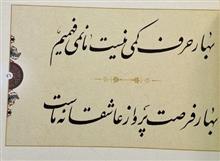 بهار حرف کمی نیست ما نمی فهمیم
بهار فرصت پرواز عاشقانه ماست